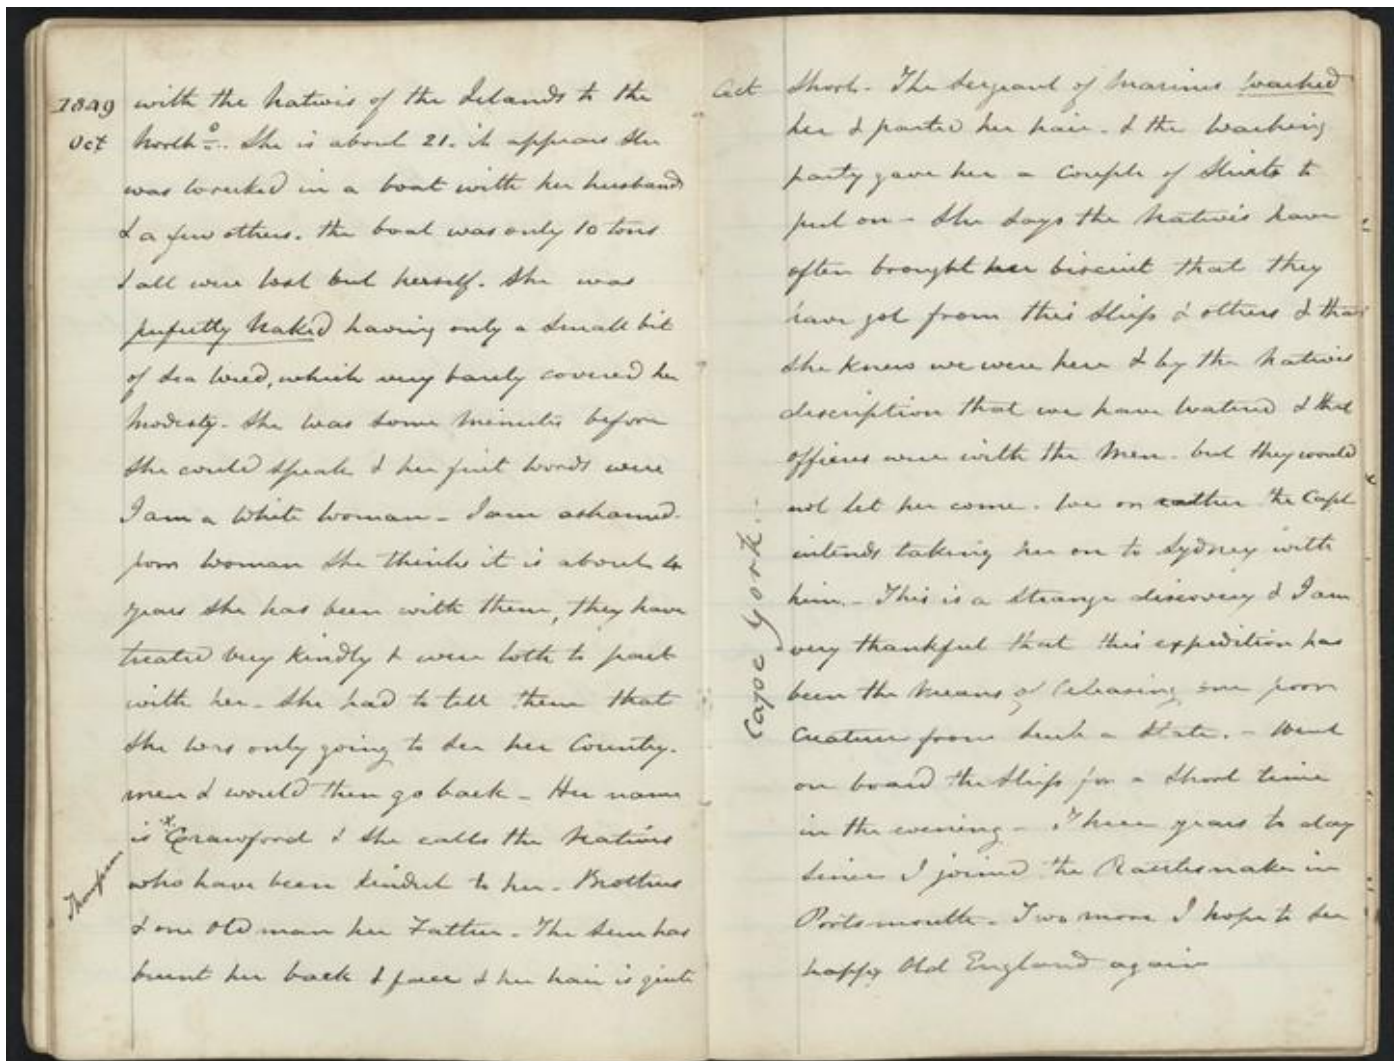 1849 with the Natives of the Islands to the
Oct North<sup>o</sup>. She is about 21. it appears she
was wrecked in a boat with her husband
& a few others. the boat was only 10 tons
& all were lost but herself. She was
perfectly Naked having only a small bit
of Sea Weed, which very barely covered her
Modesty. She was some Minutes before
She could speak & her first words were
I am a White Woman - I am ashamed.
poor Woman She thinks it is about 4
years She has been with them, they have
treated very kindly & were loth to part
with her. She had to tell them that
She was only going to see her Country.
men & would then go back - Her name
is x Crawford & She calls the Natives
Thompson
who have been kindest to her - Brothers
& one Old man her Father - The Sun has
burnt her back & face & her hair is quite
Oct Short. The Sergeant of Marines washed
her & parted her hair. & the Washing
party gave her a couple of Shirts to
put on - She Says the Natives have
often brought her biscuit that they
have got from this Ship & others & that
She knew we were here & by the Natives
description that we have Watered & that
officers were with the Men - but they would
not let her come. We or rather the Capt
intends taking her on to Sydney with
him. - This is a Strange discovery & I am
very thankful that this expedition has
been the Means of releasing one poor
Creature from such a State. - Went
on board the Ship for a Short time
in the evening - Three years to day
since I joined the Rattlesnake in
Portsmouth - Two more I hope to see
happy Old England again
Cape York.-